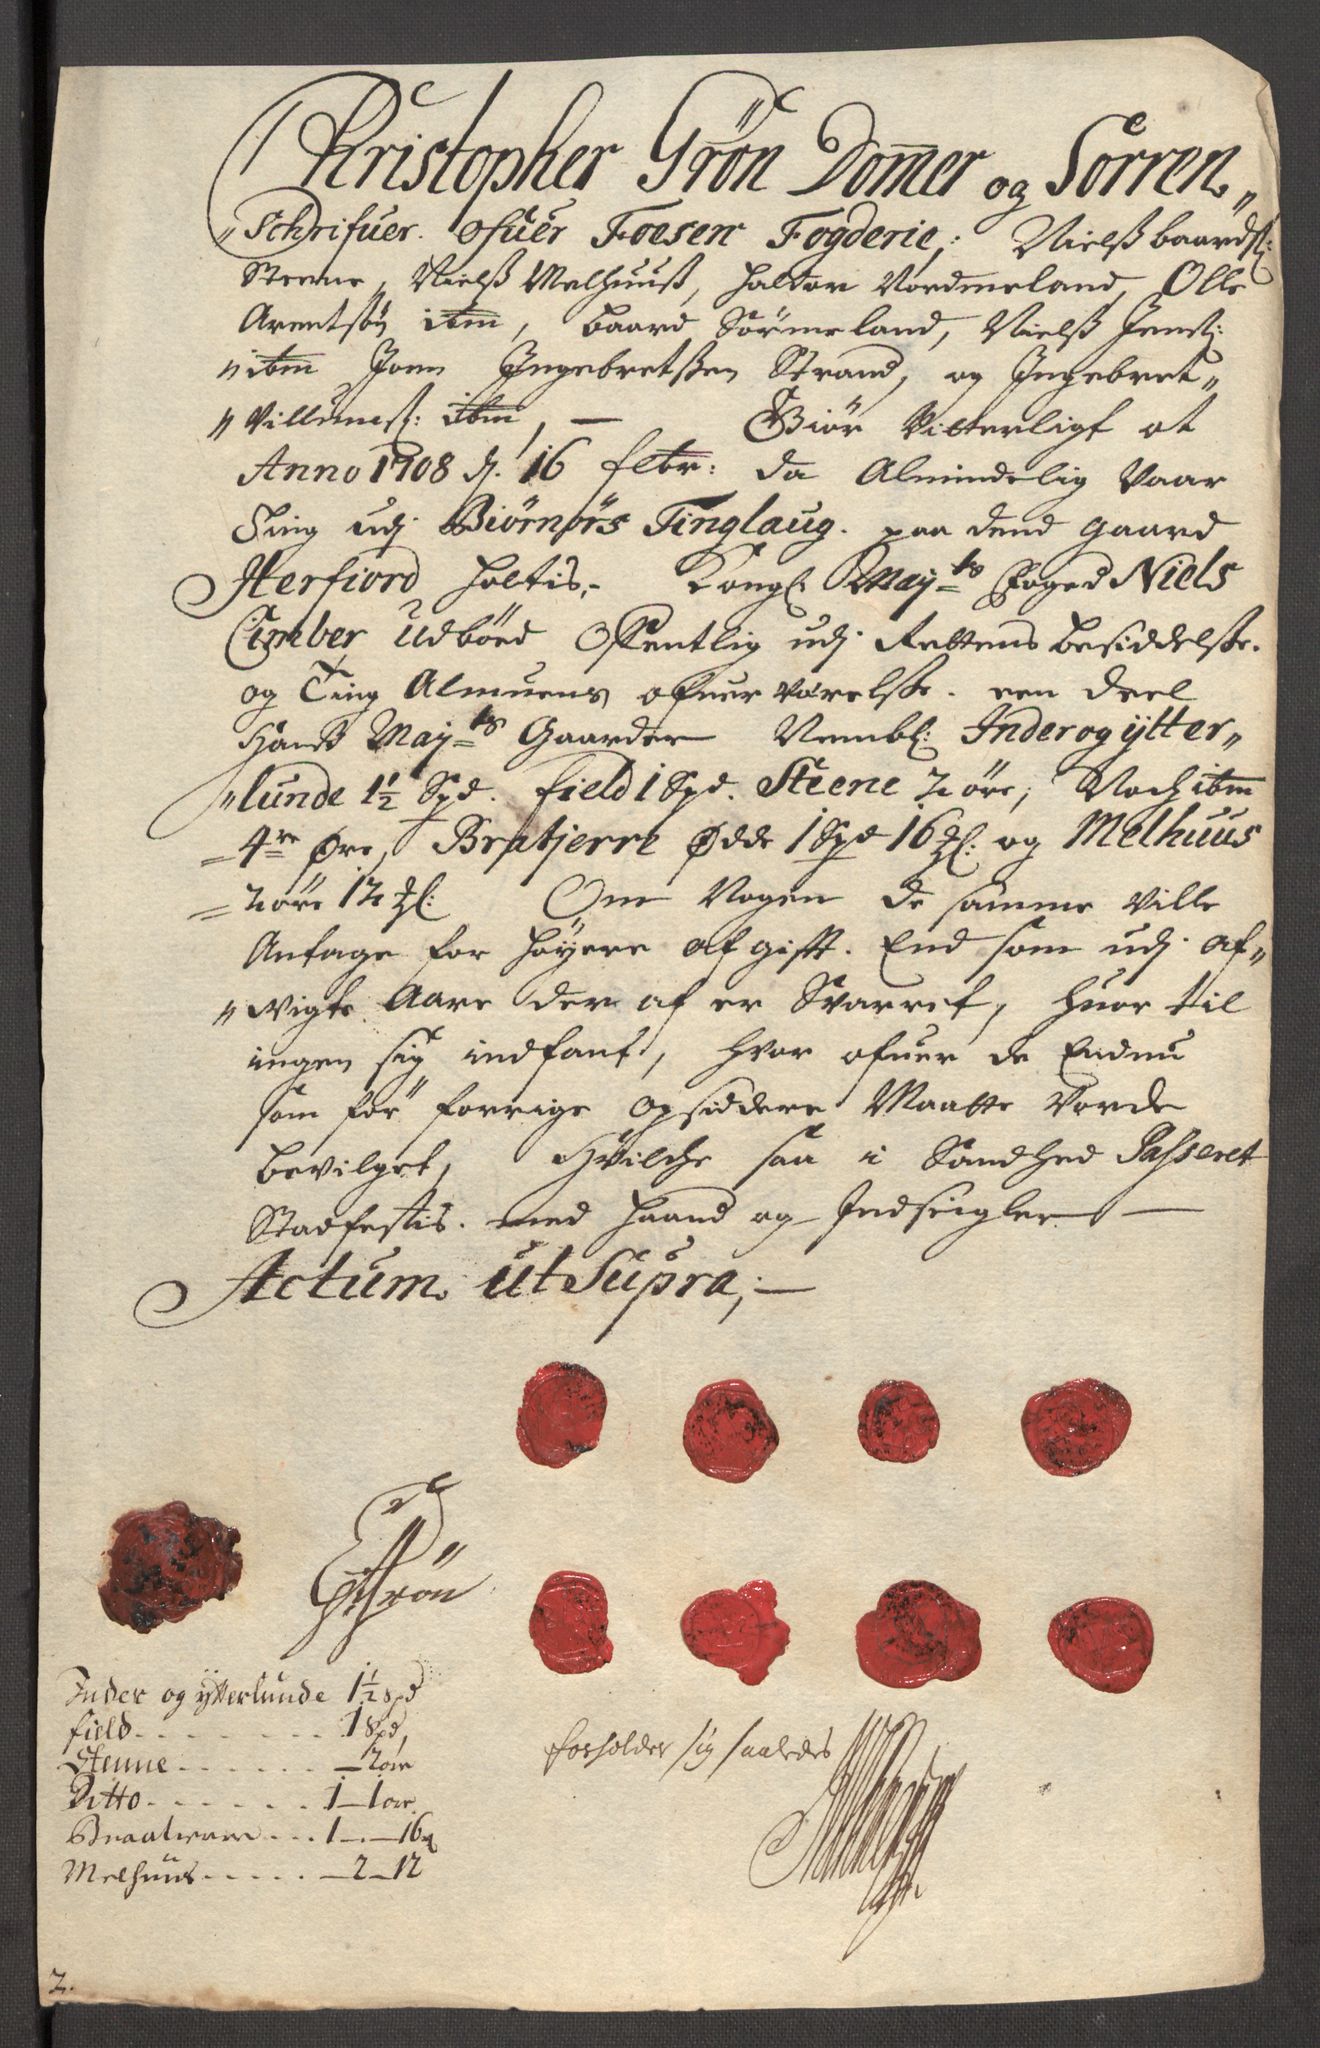 Christopher Grön Domer og Sorren„
„Schrifuer ofuer Foesen Fogderie; Nielß baardß:
Steene, Nielß Melhuuß, Haldor Nordmeland, Olle
Arentsøn ibm, Baard Sørmeland, Nielß Jenß:
„ibm Joen Ingebretßen Strand, og Ingebret„
„Villumß: ibm, — Giør Vitterligt at
Anno 1708 d. 16 febr: da Almindelig Vaar
Ting udj Biörnörs Tinglaug. paa dend gaard
Herfiord holtis, Kongl: Mayts Foged Niels
Cimber Udböed Offentlig udj Rettens besiddelße.
og Ting Almuens ofuerværelße. een deel
Hanß Mayts Gaarder Nembl: Inder og ytter„
„lunde 1½ Spd. field 1 Spd. Steene 2 öre; Noch ibm
4re Øre, Bratjerre Ødde 1 Spd 16 ꝳl: og Melhuus
2 öre 12 ꝳl: Om Nogen de samme Ville
Antage for høyere afgift. End som udj af„
„wigte Aare der af er Svarret, huor til
ingen sig indfant, hvor ofuer de Endnu
som för forrige opsiddere Maatte Vorde
bevilget, Hvilche saa i Sandhed Passeret
Stadfestis. med haand og Indseigler —
Actum ut Supra; —
Grön
Inder og ytterlunde 1½ spd
field . . . . 1 Spd,
Steene . . . . — 2 öre
Ditto . . . . 1 — 1 ore
. . . 1 — 16
Melhuus . . . . — 2 — 12
forholder sig saaledes
2.